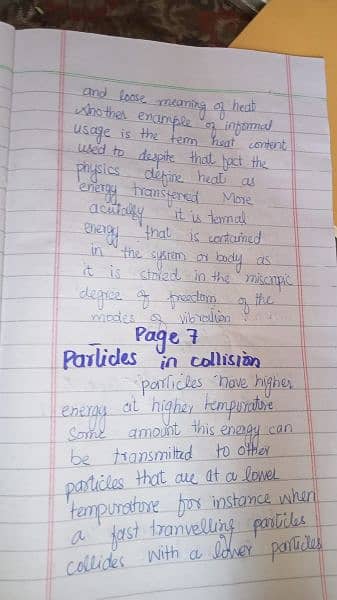 and loose meaning of heat
Another enample of informal
usage is the term heat content
used to despite that fact the
physics define heat as
energy transfered More
acutally it is termal
energy that is contained
in the system or body as
it is stored in the miscropic
degree of freedom of the
modes of vibration
Page 7
Partides in collision
particles have higher
energy at higher tempurature
Some amount this energy can
be transmitted to other
particles that are at a lower
tempurature for instance when
a fast tranvelling particles
collides with a lower particles